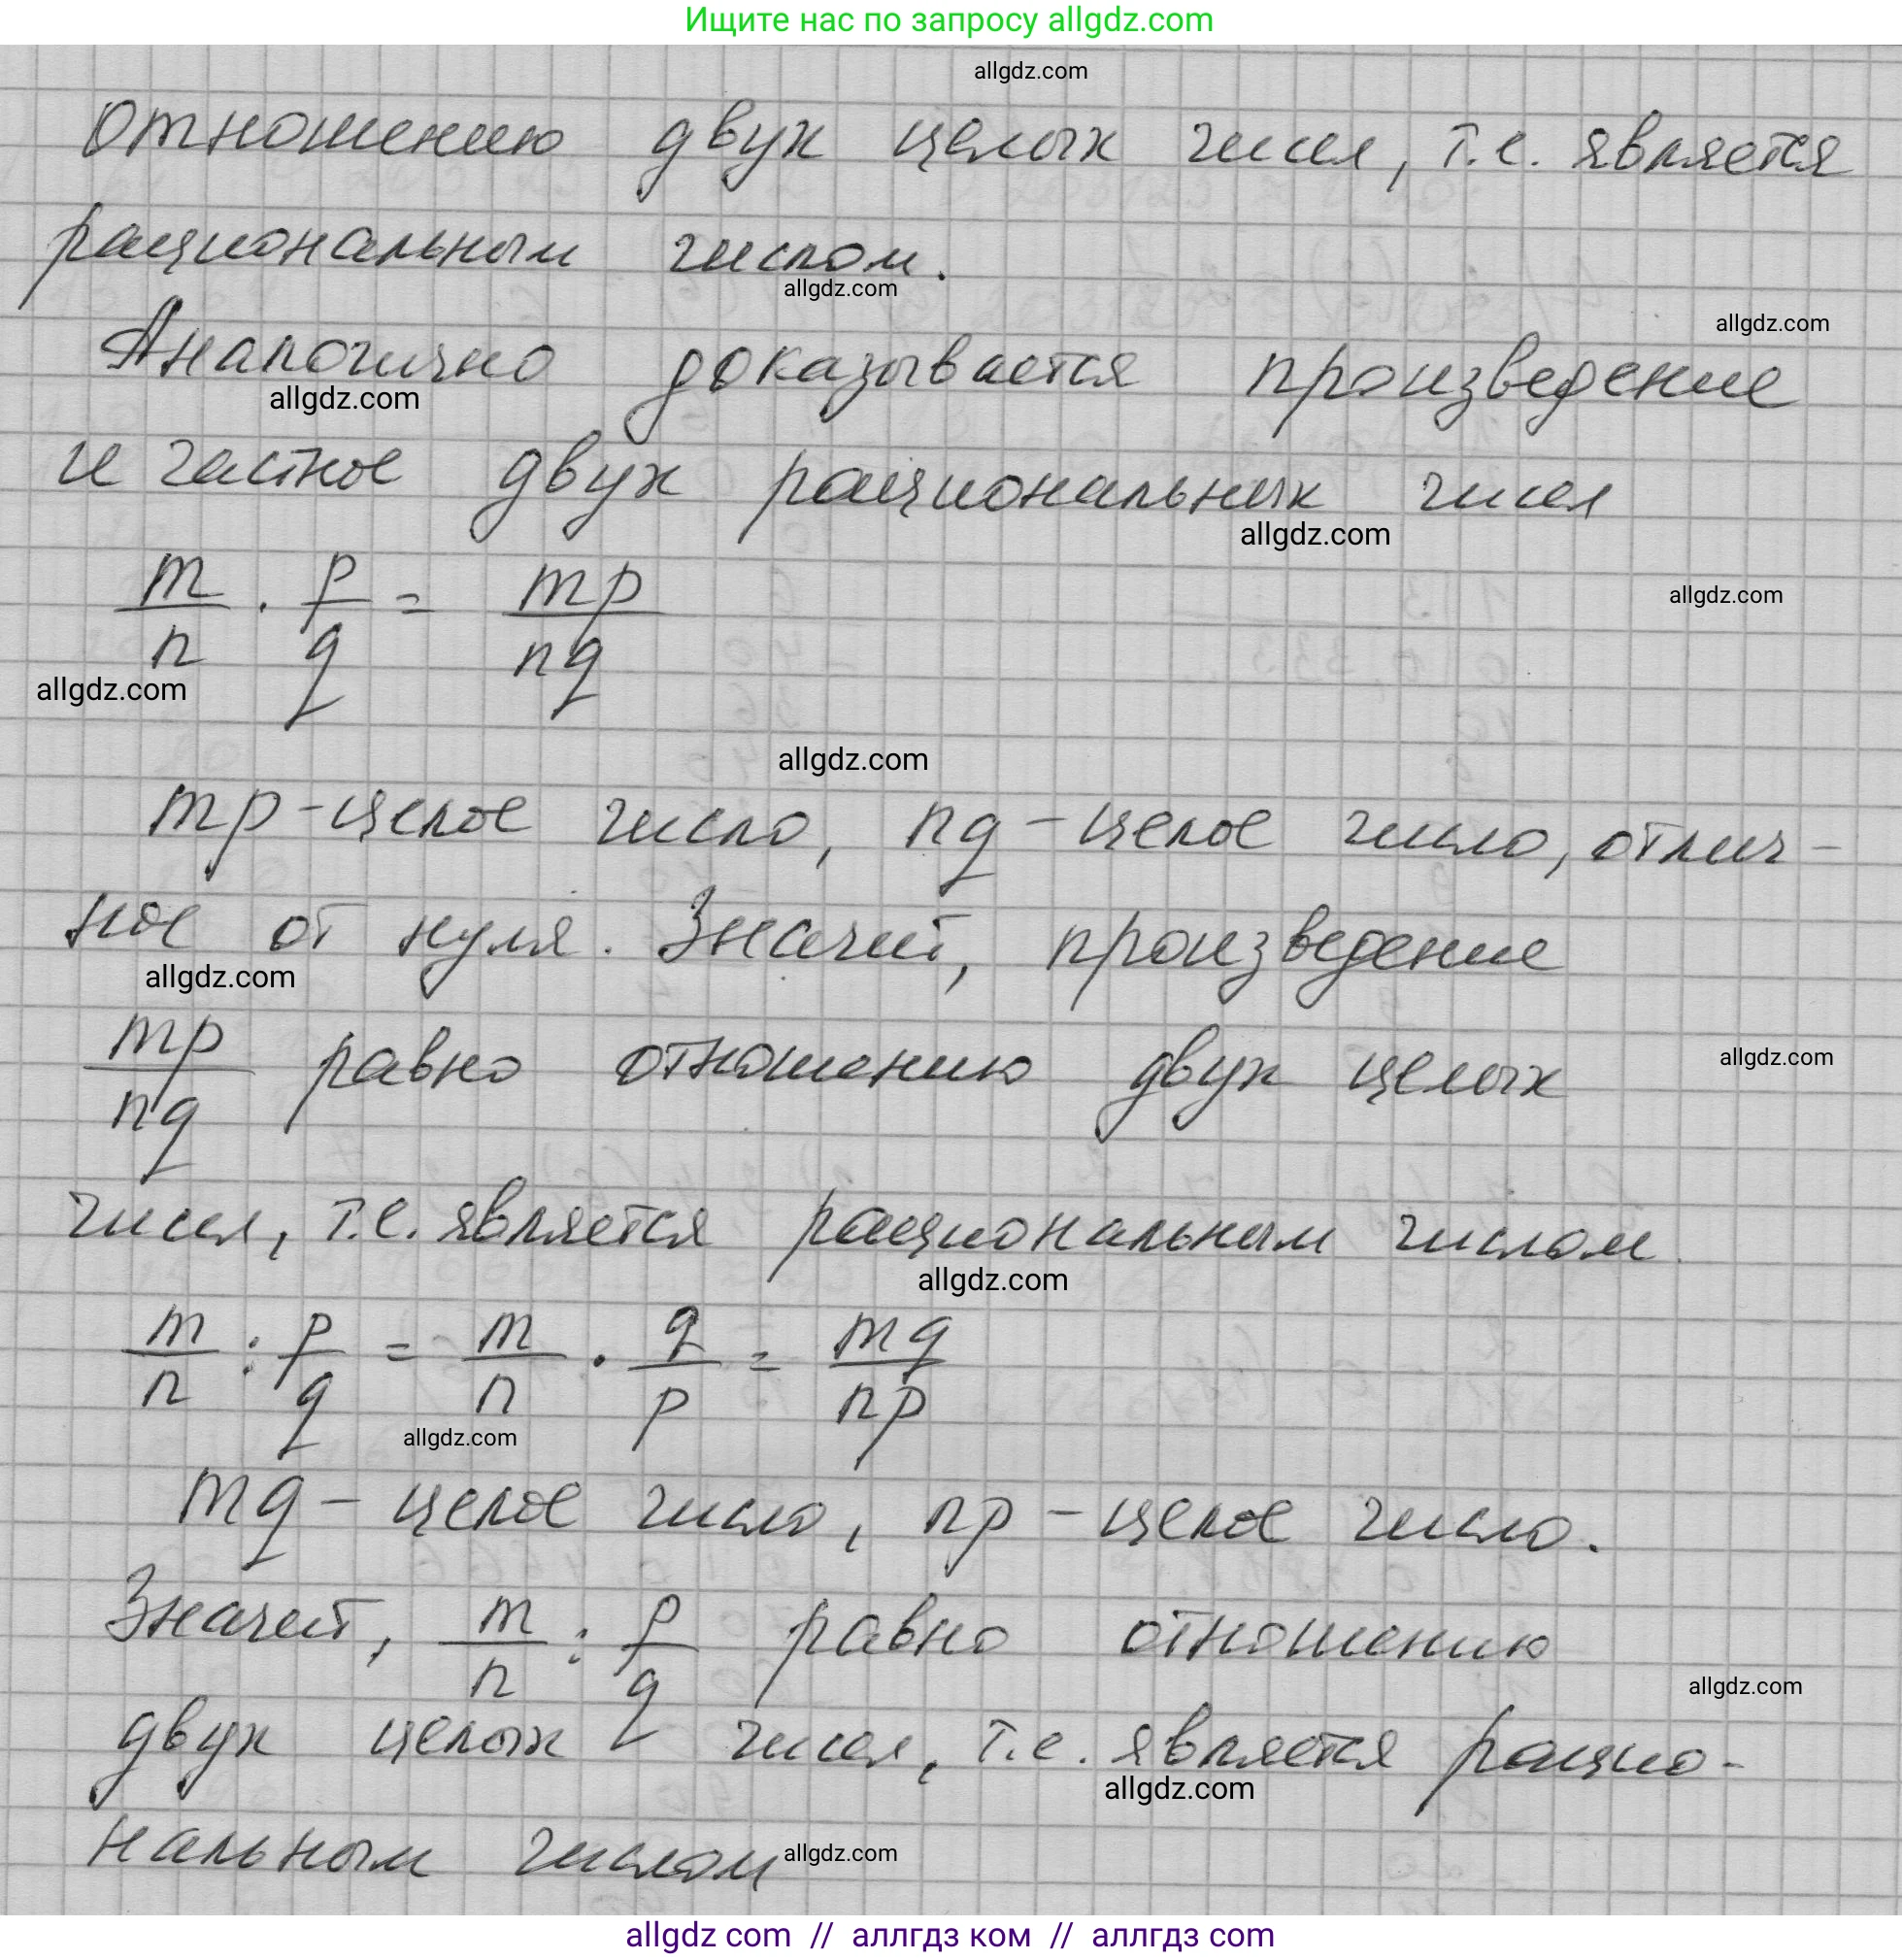 Ищите нас по запросу allgdz.com
allgdz.com
отношению двух целых чисел, т.е. является
рациональным числом.
allgdz.com
allgdz.com
Аналогично доказывается произведение
allgdz.com
и частное двух рациональных чисел
allgdz.com
m/n · p/q = mp/nq
allgdz.com
allgdz.com
allgdz.com
mp - целое число, nq - целое число, отлич-
ное от нуля. Значит, произведение
allgdz.com
mp/nq равно отношению двух целых
allgdz.com
чисел, т.е. является рациональным числом.
allgdz.com
m/n : p/q = m/n · q/p = mq/np
allgdz.com
mq - целое число, np - целое число.
Значит, m/n : p/q равно отношению
allgdz.com
двух целых чисел, т.е. является рацио-
allgdz.com
нальным числом
allgdz.com
allgdz com // аллгдз ком // аллгдз com